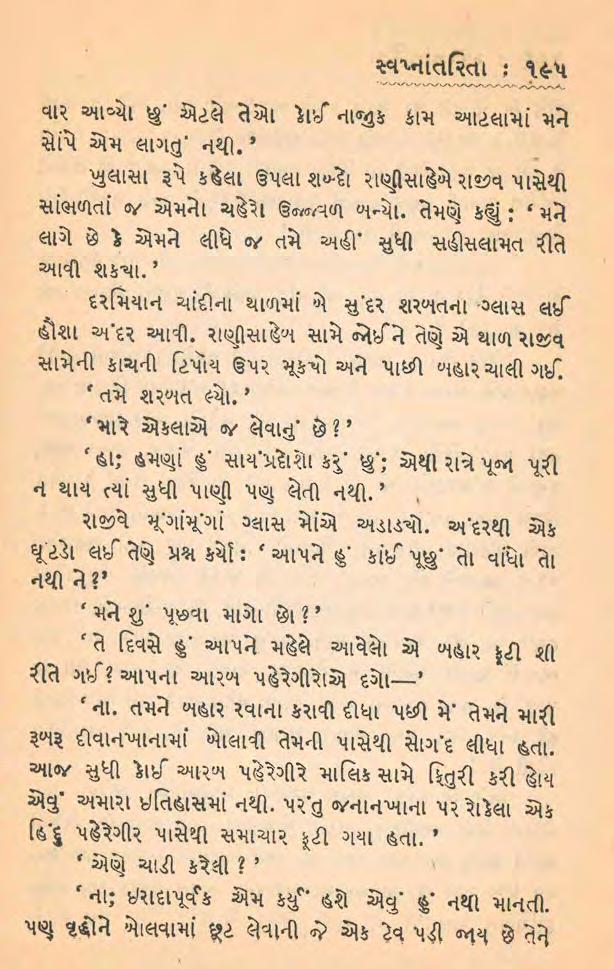 સ્વપ્નાંતરિતા : ૧૯૫
વાર આવ્યો છું એટલે તેઓ કોઈ નાજુક કામ આટલામાં મને
સોંપે એમ લાગતું નથી.’
ખુલાસા રૂપે કહેલા ઉપલા શબ્દો રાણીસાહેબે રાજીવ પાસેથી
સાંભળતાં જ એમનો ચહેરો ઉજ્જવળ બન્યો. તેમણે કહ્યું : ‘મને
લાગે છે કે એમને લીધે જ તમે અહીં સુધી સહીસલામત રીતે
આવી શકયા.’
દરમિયાન ચાંદીના થાળમાં બે સુંદર શરબતના ગ્લાસ લઈ
હૌશા અંદર આવી. રાણીસાહેબ સામે જોઈને તેણે એ થાળ રાજીવ
સામેની કાચની ટિપૉય ઉપર મૂકયો અને પાછી બહાર ચાલી ગઈ.
‘તમે શરબત લ્યો.’
‘મારે એકલાએ જ લેવાનું છે?’
‘હા; હમણાં હું સાયંપ્રદોશો કરું છું; એથી રાત્રે પૂજા પૂરી
ન થાય ત્યાં સુધી પાણી પણ લેતી નથી.’
રાજીવે મૂંગાંમૂંગાં ગ્લાસ મોંએ અડાડયો. અંદરથી એક
ઘૂંટડો લઈ તેણે પ્રશ્ન કર્યો : ‘આપને હું કાંઈ પૂછું તો વાંધો તો
નથી ને?’
‘મને શું પૂછવા માગો છો?’
‘તે દિવસે હું આપને મહેલે આવેલો એ બહાર ફૂટી શી
રીતે ગઈ? આપના આરબ પહેરેગીરોએ દગો—’
‘ના. તમને બહાર રવાના કરાવી દીધા પછી મેં તેમને મારી
રૂબરૂ દીવાનખાનામાં બોલાવી તેમની પાસેથી સોગંદ લીધા હતા.
આજ સુધી કોઈ આરબ પહેરેગીરે માલિક સામે ફિતુરી કરી હોય
એવું અમારા ઇતિહાસમાં નથી. પરંતુ જનાનખાના પર રોકેલા એક
હિંદુ પહેરેગીર પાસેથી સમાચાર ફૂટી ગયા હતા.’
‘એણે ચાડી કરેલી?’
‘ના; ઇરાદાપૂર્વક એમ કર્યું હશે એવું હું નથી માનતી.
પણ વૃદ્ધોને બોલવામાં છૂટ લેવાની જે એક ટેવ પડી જાય છે તેને